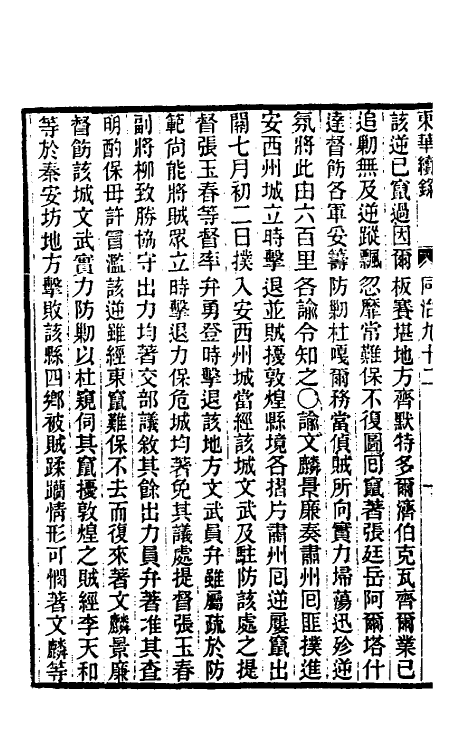 東華續錄　同治九十二　一
該逆已竄過因爾板賽堪地方齊默特多爾濟伯克瓦齊爾業已
追勦無及逆蹤飄忽靡常難保不復圖囘竄著張廷岳阿爾塔什
達督飭各軍妥籌防勦杜嘎爾務當偵賊所向實力埽蕩迅殄逆
氛將此由六百里各諭令知之〇諭文麟景廉奏肅州囘匪撲進
安西州城立時擊退並賊擾敦煌縣境各摺片肅州囘逆屢竄出
關七月初二日撲入安西州城當經該城文武及駐防該處之提
督張玉春等督率弁勇登時擊退該地方文武員弁雖屬疏於防
範尙能將賊眾立時擊退力保危城均著免其議處提督張玉春
副將柳致勝協守出力均著交部議敘其餘出力員弁著准其查
明酌保毋許冒濫該逆雖經東竄難保不去而復來著文麟景廉
督飭該城文武實力防勦以杜窺伺其竄擾敦煌之賊經李天和
等於秦安坊地方擊敗該縣四鄉被賊蹂躪情形可憫著文麟等